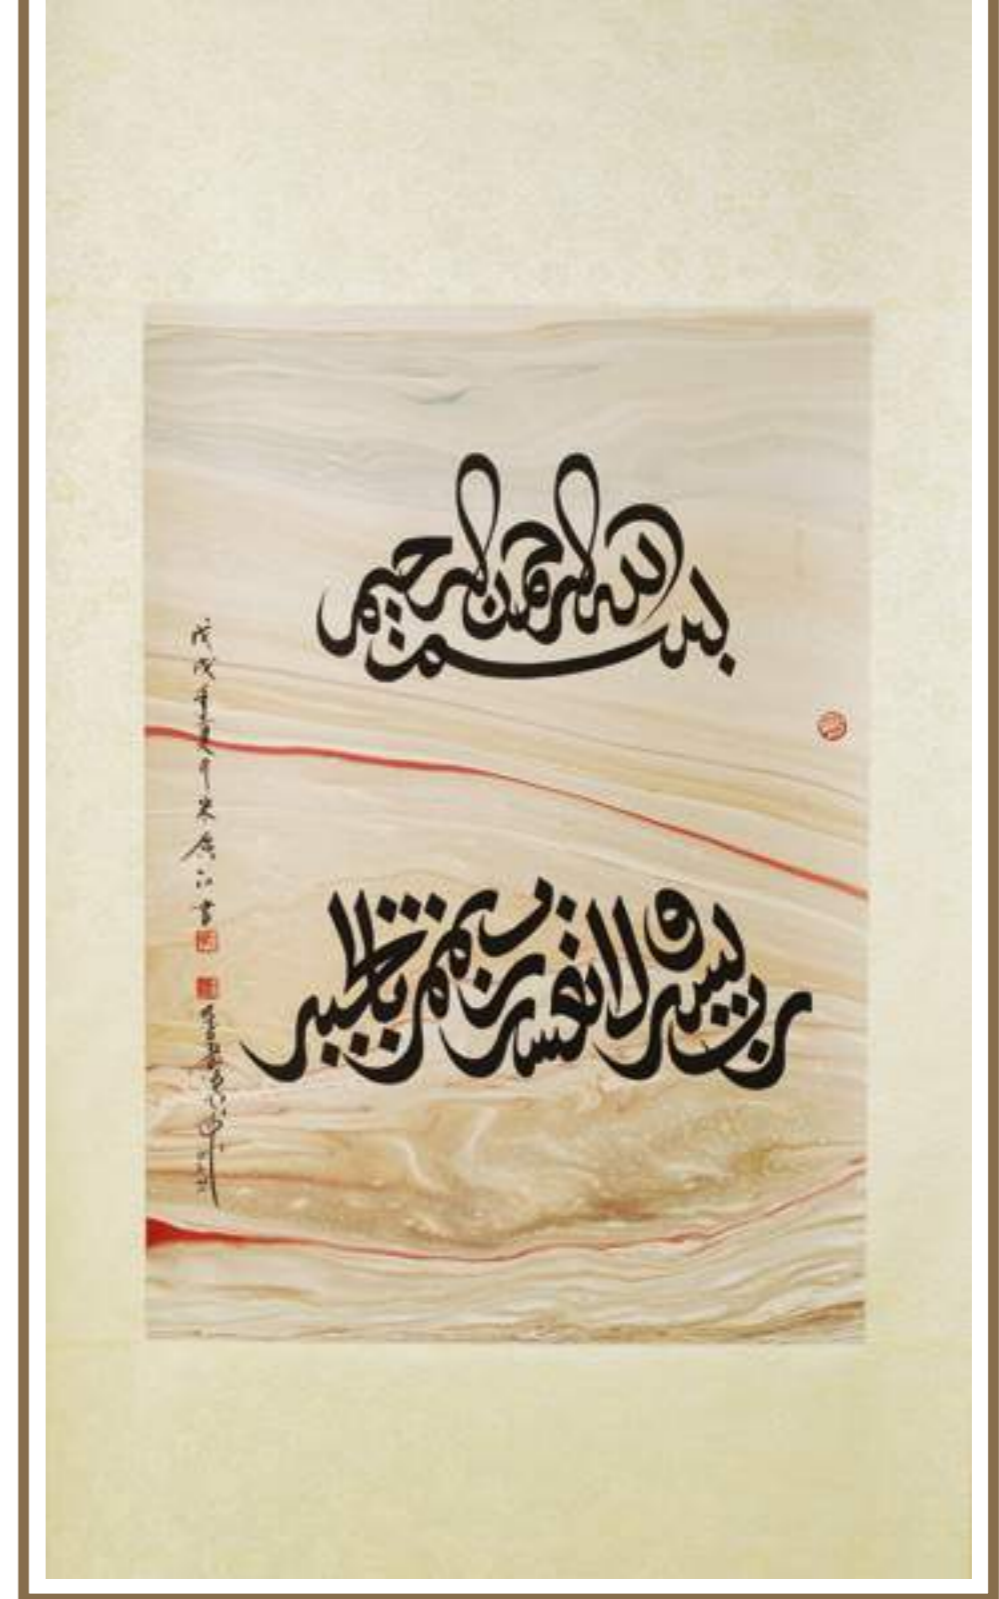 بسم الله الرحمن الرحيم
رب يسر ولا تعسر رب تمم بالخير
戊戌
米廣江書